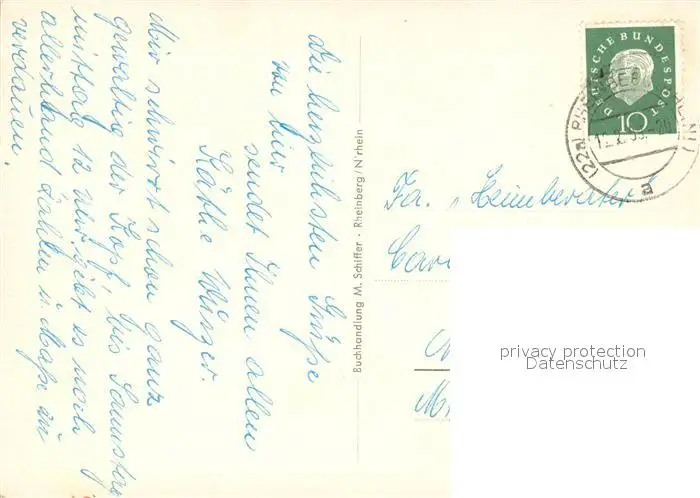 die herzlichsten Grüße
von hier
sendet Ihnen allen
Käthe
Mir schwirrt schon ganz
gewaltig der Kopf, bis Samstag
mittag 12 Uhr gibt es noch
allerhand Daten u. Maße zu
verdauen.
Buchhandlung M. Schiffer · Rheinberg/N'rhein
DEUTSCHE BUNDESPOST
10
(22a)
a
Fa. "Heimberater"
privacy protection
Datenschutz